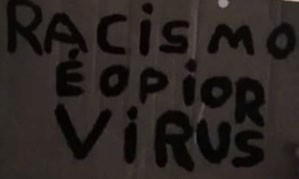 RACiSMO
É O PiOR
ViRUS